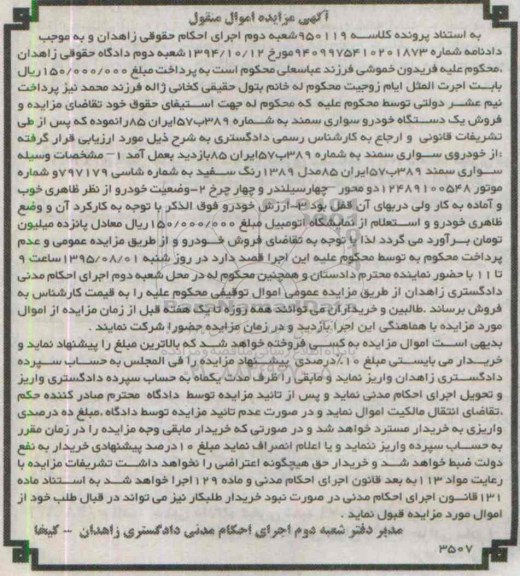 آگهی مزایده اموال منقول
به استناد پرونده کلاسه ۹۵۰۱۱۹شعبه دوم اجرای احکام حقوقی زاهدان و به موجب
دادنامه شماره ۹۴۰۹۹۷۵۴۱۰۲۰۱۸۷۳مورخ ۱۳۹۴/۱۰/۱۲شعبه دوم دادگاه حقوقی زاهدان
،محکوم علیه فریدون خموشی فرزند عباسعلی محکوم است به پرداخت مبلغ ۱۵۰/۰۰۰/۰۰۰ریال
بابت اجرت المثل ایام زوجیت محکوم له خانم بتول حقیقی کخائی ژاله فرزند محمد نیز پرداخت
نیم عشر دولتی توسط محکوم علیه که محکوم له جهت استیفای حقوق خود تقاضای مزایده و
فروش یک دستگاه خودرو سواری سمند به شماره ۳۸۹ب۵۷ایران ۸۵رانموده که پس از طی
تشریفات قانونی و ارجاع به کارشناس رسمی دادگستری به شرح ذیل مورد ارزیابی قرار گرفته
:از خودروی سواری سمند به شماره ۳۸۹ب۵۷ایران ۸۵بازدید بعمل آمد ۱- مشخصات وسیله
سواری سمند ۳۸۹ب۵۷ایران ۸۵مدل ۱۳۸۹رنگ سفید به شماره شاسی ۷۹۷۱۷۹و شماره
موتور ۱۲۴۸۹۱۰۰۵۴۸دو محور -چهارسیلندر و چهار چرخ ۲-وضعیت خودرو از نظر ظاهری خوب
و آماده به کار ولی دربهای آن قفل بود ۳-ارزش خودرو فوق الذکر با توجه به کارکرد آن و وضع
ظاهری خودرو و استعلام از نمایشگاه اتومبیل مبلغ ۱۵۰/۰۰۰/۰۰۰ریال معادل پانزده میلیون
تومان برآورد می گردد لذا با توجه به تقاضای فروش خودرو و از طریق مزایده عمومی و عدم
پرداخت محکوم به توسط محکوم علیه این اجرا قصد دارد در روز شنبه ۱۳۹۵/۰۸/۰۱ساعت ۹
تا ۱۱ با حضور نماینده محترم دادستان و همچنین محکوم له در محل شعبه دوم اجرای احکام مدنی
دادگستری زاهدان از طریق مزایده عمومی اموال توقیفی محکوم علیه را به قیمت کارشناس به
فروش برساند .طالبین و خریداران می توانند همه روزه تا یک هفته قبل از زمان مزایده از اموال
مورد مزایده با هماهنگی این اجرا بازدید و در زمان مزایده حضورا شرکت نمایند .
بدیهی است اموال مزایده به کسی فروخته خواهد شد که بالاترین مبلغ را پیشنهاد نماید و
خریدار می بایستی مبلغ ۱۰٪درصدی پیشنهاد مزایده را فی المجلس به حساب سپرده
دادگستری زاهدان واریز نماید و مابقی را ظرف مدت یکماه به حساب سپرده دادگستری واریز
و تحویل اجرای احکام مدنی نماید و پس از تائید مزایده توسط دادگاه محترم صادر کننده حکم
،تقاضای انتقال مالکیت اموال نماید و در صورت عدم تائید مزایده توسط دادگاه ،مبلغ ده درصدی
واریزی به خریدار مسترد خواهد شد و در صورتی که خریدار مابقی وجه مزایده را در زمان مقرر
به حساب سپرده واریز ننماید و یا اعلام انصراف نماید مبلغ ۱۰درصد پیشنهادی خریدار به نفع
دولت ضبط خواهد شد و خریدار حق هیچگونه اعتراضی را نخواهد داشت تشریفات مزایده با
رعایت مواد ۱۱۳به بعد قانون اجرای احکام مدنی و ماده ۱۲۹اجرا خواهد شد به استناد ماده
۱۳۱قانون اجرای احکام مدنی در صورت نبود خریدار طلبکار نیز می تواند در قبال طلب خود از
اموال مورد مزایده قبول نماید .
مدیر دفتر شعبه دوم اجرای احکام مدنی دادگستری زاهدان - کیخا
۳۵۰۷